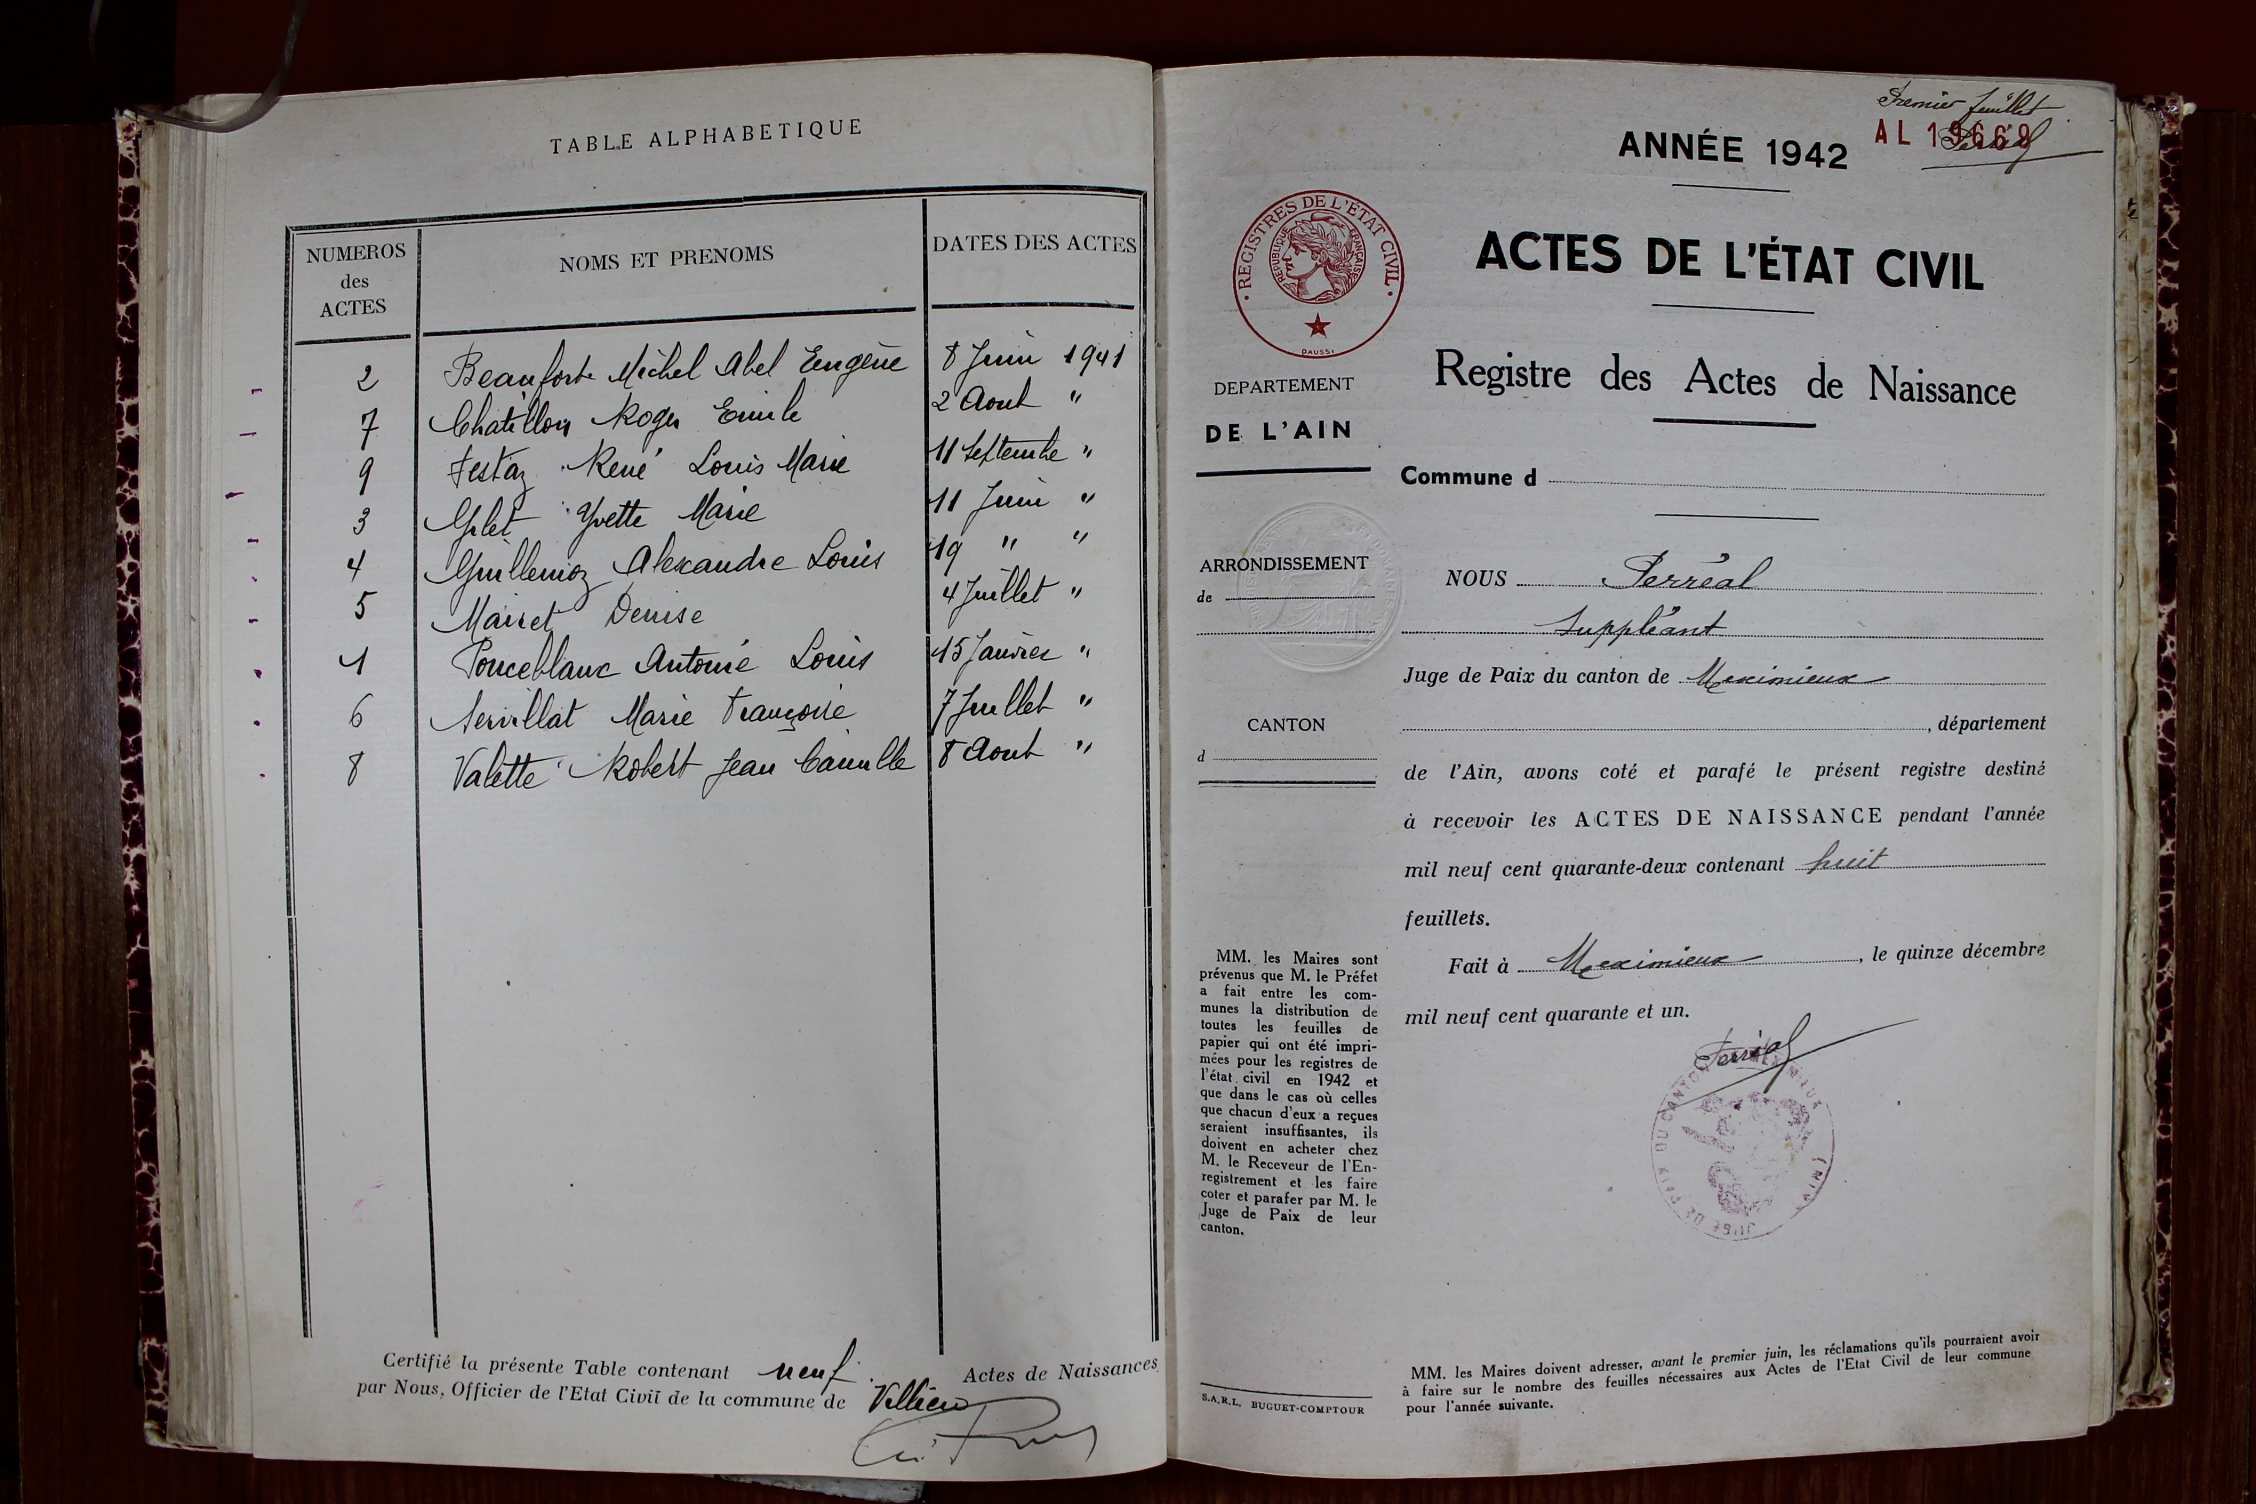 TABLE ALPHABETIQUE
NUMEROS
des
ACTES
NOMS ET PRENOMS
DATES DES ACTES
2 Beaufort Michel Abel Eugène 8 Juin 1941
7 Chatillon Roger Emile 2 Aout "
9 Festaz René Louis Marie 11 Septembre "
3 Yvette Marie 11 Juin "
4 Guillemoz Alexandre Louis 19 " "
5 Mairet Denise 4 Juillet "
1 Ponceblanc Antonie Louis 15 Janvier "
6 Servillat Marie Françoise 7 Juillet "
8 Valette Robert Jean Camille 8 Aout "
Certifié la présente Table contenant neuf. Actes de Naissances
par Nous, Officier de l'Etat Civil de la commune de Villieu
Premier feuillet
AL 19669
Perréal
ANNÉE 1942
REGISTRES DE L'ETAT CIVIL
REPUBLIQUE FRANÇAISE
DAUSSI
ACTES DE L'ÉTAT CIVIL
Registre des Actes de Naissance
DEPARTEMENT
DE L'AIN
Commune d
ARRONDISSEMENT
de
CANTON
d
NOUS Perréal
Suppléant
Juge de Paix du canton de Meximieux
, département
de l'Ain, avons coté et parafé le présent registre destiné
à recevoir les ACTES DE NAISSANCE pendant l'année
mil neuf cent quarante-deux contenant huit
feuillets.
Fait à Meximieux, le quinze décembre
mil neuf cent quarante et un.
Perréal
JUGE DE PAIX DU CANTON DE MEXIMIEUX (AIN)
MM. les Maires sont
prévenus que M. le Préfet
a fait entre les com-
munes la distribution de
toutes les feuilles de
papier qui ont été impri-
mées pour les registres de
l'état civil en 1942 et
que dans le cas où celles
que chacun d'eux a reçues
seraient insuffisantes, ils
doivent en acheter chez
M. le Receveur de l'En-
registrement et les faire
coter et parafer par M. le
Juge de Paix de leur
canton.
S.A.R.L. BUGUET-COMPTOUR
MM. les Maires doivent adresser, avant le premier juin, les réclamations qu'ils pourraient avoir
à faire sur le nombre des feuilles nécessaires aux Actes de l'Etat Civil de leur commune
pour l'année suivante.